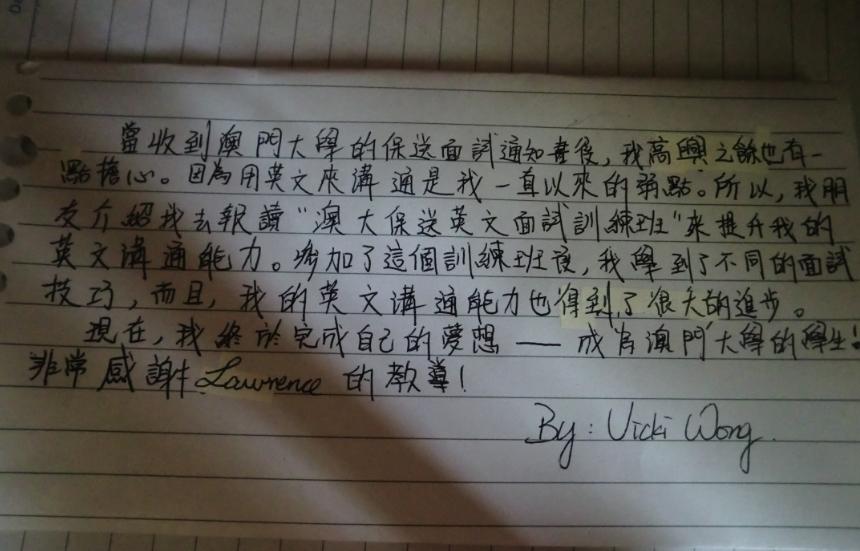 當收到澳門大學的保送面試通知書後，我高興之餘也有一
點擔心。因為用英文來溝通是我一直以來的弱點。所以，我朋
友介紹我去報讀“澳大保送英文面試訓練班”來提升我的
英文溝通能力。參加了這個訓練班後，我學到了不同的面試
技巧，而且，我的英文溝通能力也得到了很大的進步。
現在，我終於完成自己的夢想——成為澳門大學的學生！
非常感謝 Lawrence 的教導！
By: Vicki Wong.